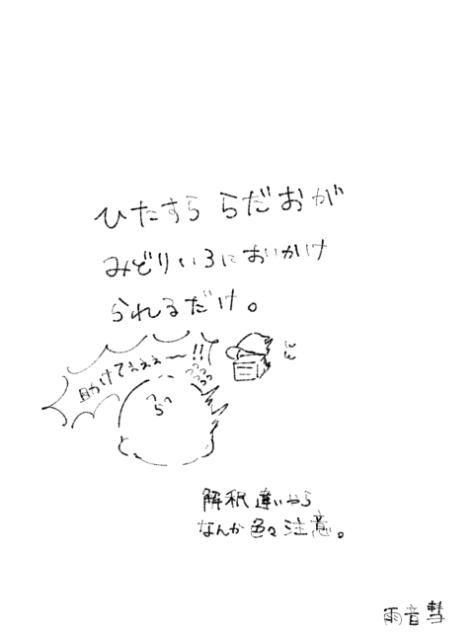 ひたすら らだおが
みどりいろにおいかけ
られるだけ。
助けてぇぇぇ〜!!
ら
解釈違いやら
なんか色々注意。
雨音彗